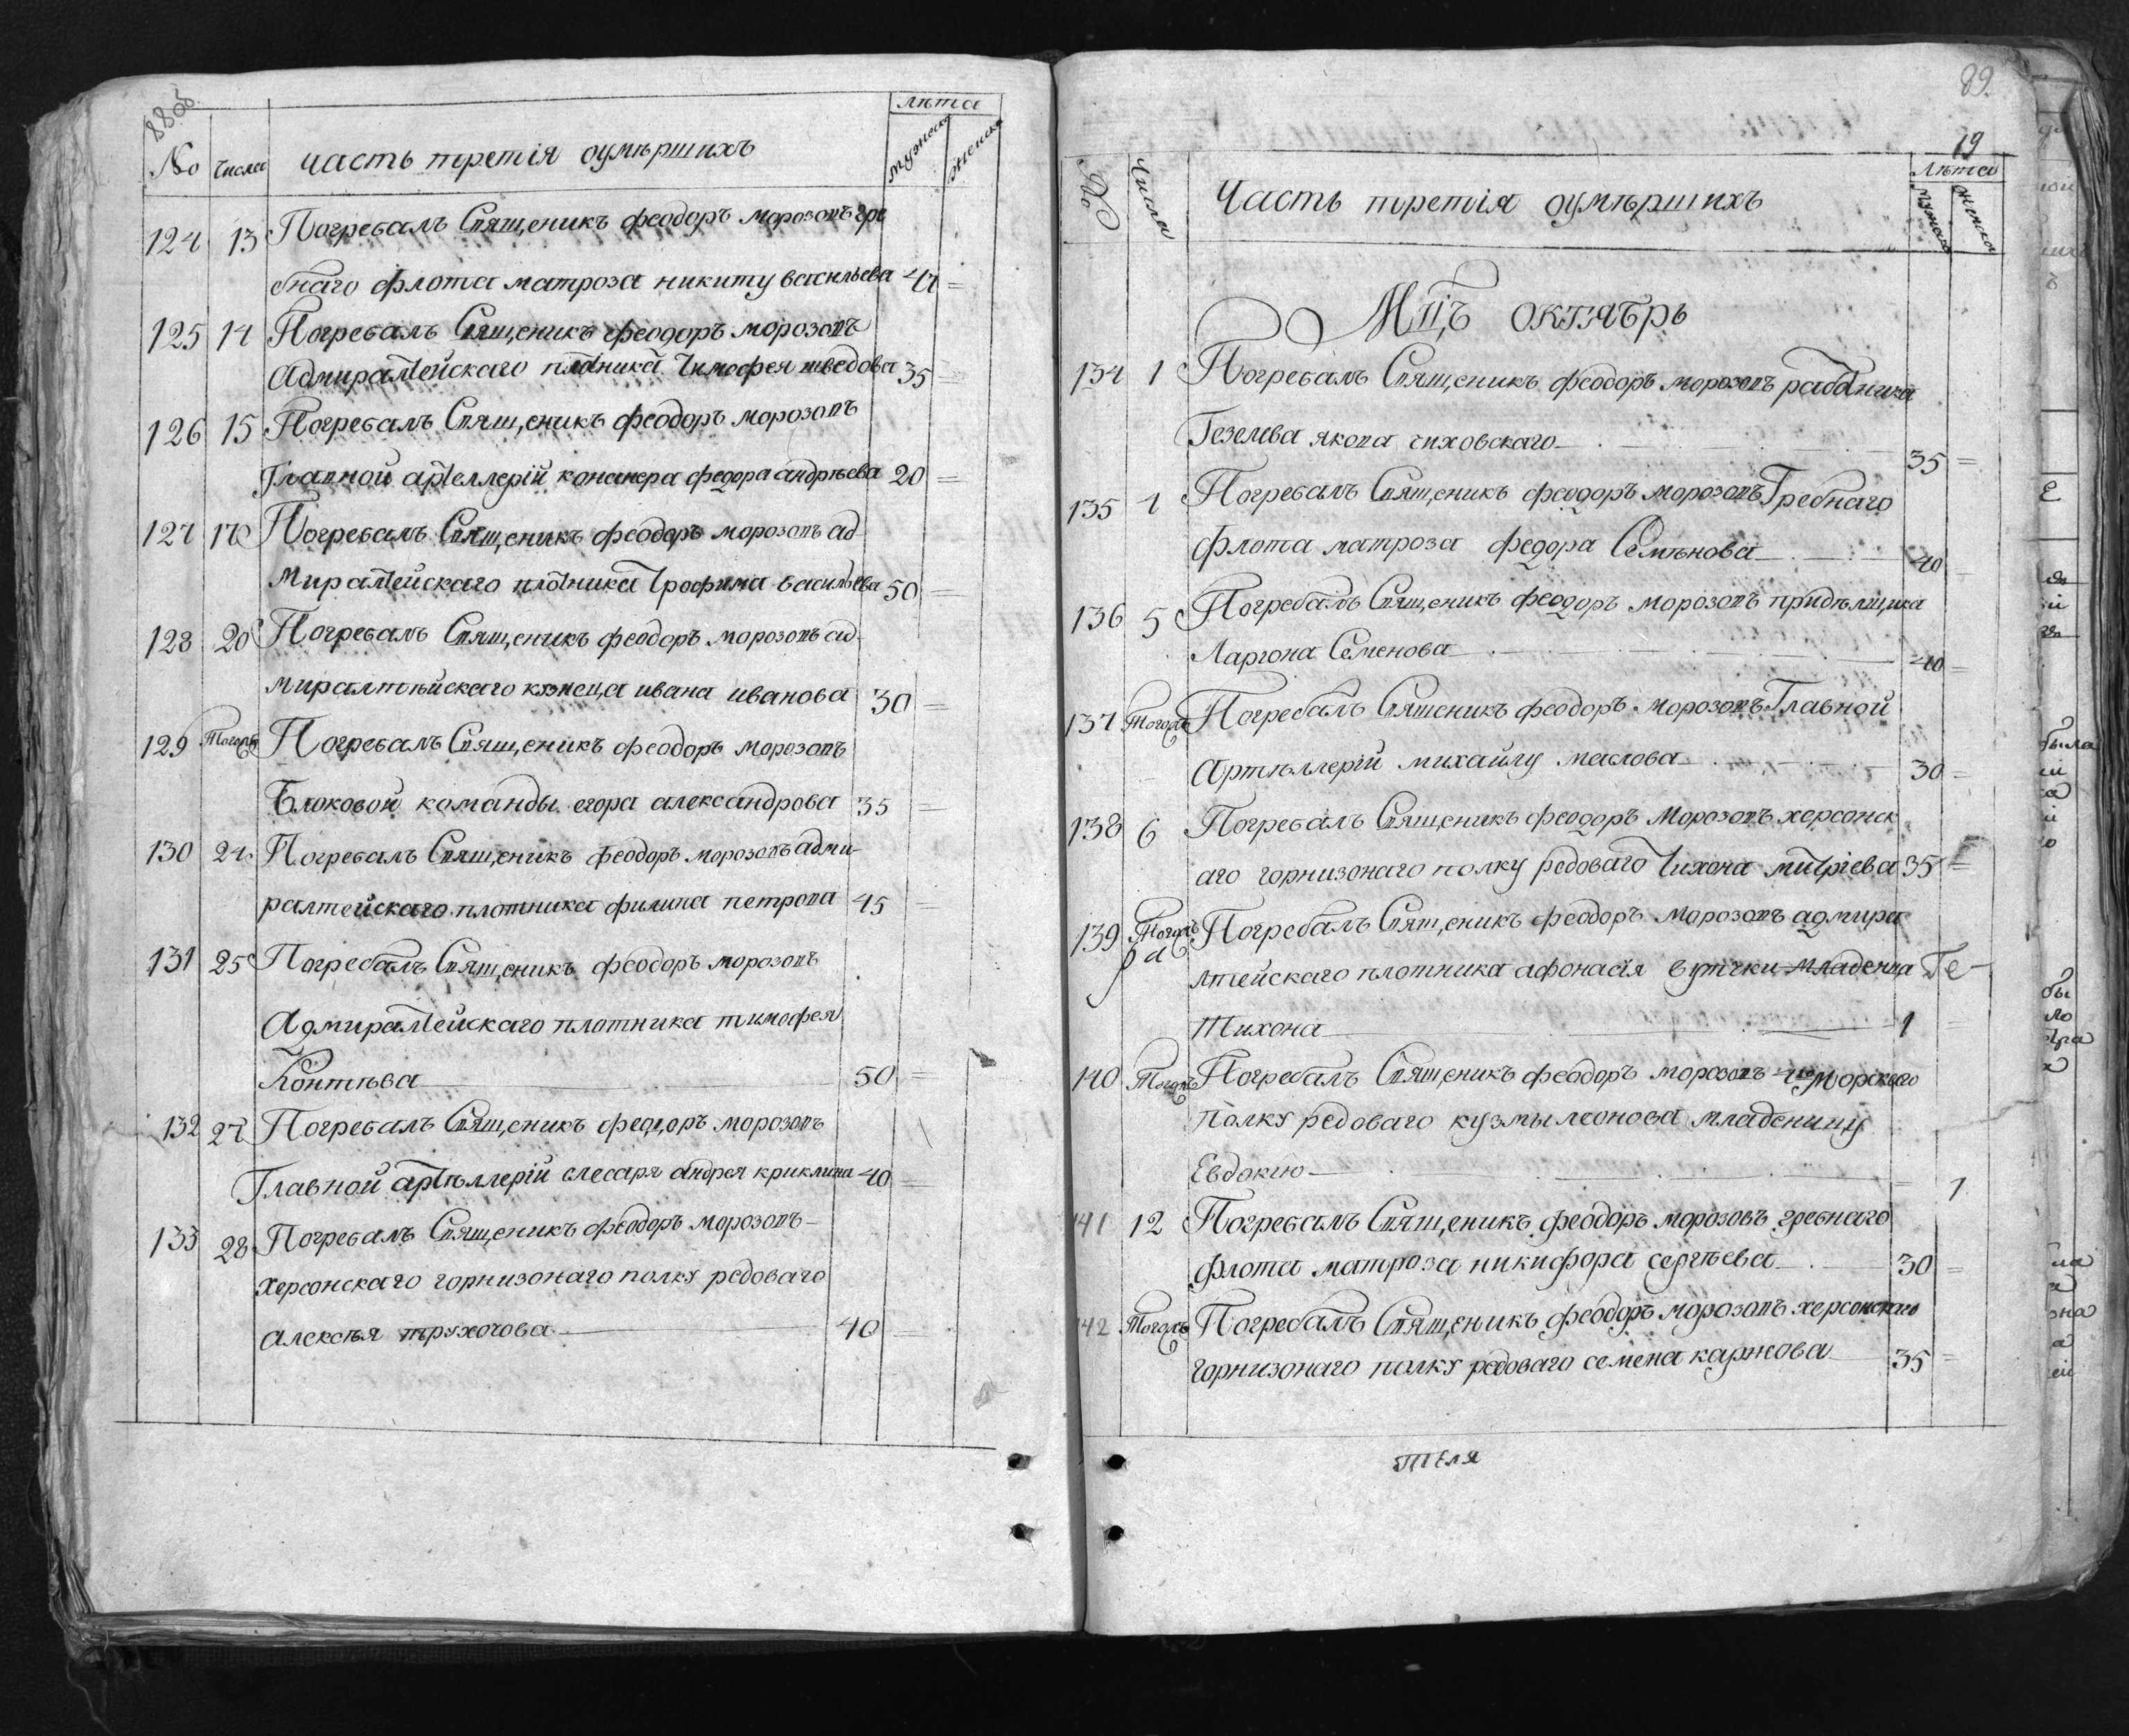 88об
No числа часть третія оумѣршихъ лѣта мужеска женска
124 13 Погребалъ Священикъ феодоръ морозовъ гре
бнаго флота матроза никиту васильева 47 =
125 14 Погребалъ Священикъ феодоръ морозовъ
Адмиралтейскаго плотника тимофея шведова 35 =
126 15 Погребалъ Священикъ феодоръ морозовъ
Главной артеллерій конанера федора андрѣева 20 =
127 17 Погребалъ Священикъ феодоръ морозовъ ад
миралтейскаго плотника трофима васильева 50 =
128 20 Погребалъ Священикъ феодоръ морозовъ ад
миралтѣйскаго кузнеца ивана иванова 30 =
129 Тогожъ Погребалъ Священикъ феодоръ морозовъ
Блоковой команды егора александрова 35 =
130 24 Погребалъ Священикъ феодоръ морозовъ адми-
ралтейскаго плотника филипа петрова 45 =
131 25 Погребалъ Священикъ феодоръ морозовъ
Адмиралтейскаго плотника тимофея
Коптѣва 50 =
132 27 Погребалъ Священикъ феодоръ морозовъ
Главной артѣллерій слесаря андрея криклина 40 =
133 28 Погребалъ Священикъ феодоръ морозовъ
херсонскаго горнизонаго полку редоваго
алексѣя трухочова 40 =
89
19
No Числа Часть третія оумѣршихъ Лѣта мужеска женска
Мцъ октябрь
134 1 Погребалъ Священикъ феодоръ морозовъ работника
Гезелева якова чиховскаго 35 =
135 1 Погребалъ Священикъ феодоръ морозовъ Гребнаго
флота матроза федора Семѣнова 40 =
136 5 Погребалъ Священикъ феодоръ морозовъ придѣлщика
Лариона Семенова 40 =
137 Тогожъ Погребалъ Священикъ феодоръ морозовъ Главной
Артѣллерій михайлу маслова 30 =
138 6 Погребалъ Священикъ феодоръ морозовъ херсонск
аго горнизонаго полку редоваго тихона митріева 35 =
139 Тогожъ Погребалъ Священикъ феодоръ морозовъ адмира
лтейскаго плотника афонасія вутчки младенца
Тихона 1
140 Тогожъ Погребалъ Священикъ феодоръ морозовъ морскаго
полку редоваго кузмы леонова младеницу
Евдокию = 1
141 12 Погребалъ Священикъ феодоръ морозовъ гребнаго
флота матроза никифора сергѣева 30 =
142 Тогожъ Погребалъ Священикъ феодоръ морозовъ херсонскаго
горнизонаго полку редоваго семена каржова 35 =
теля